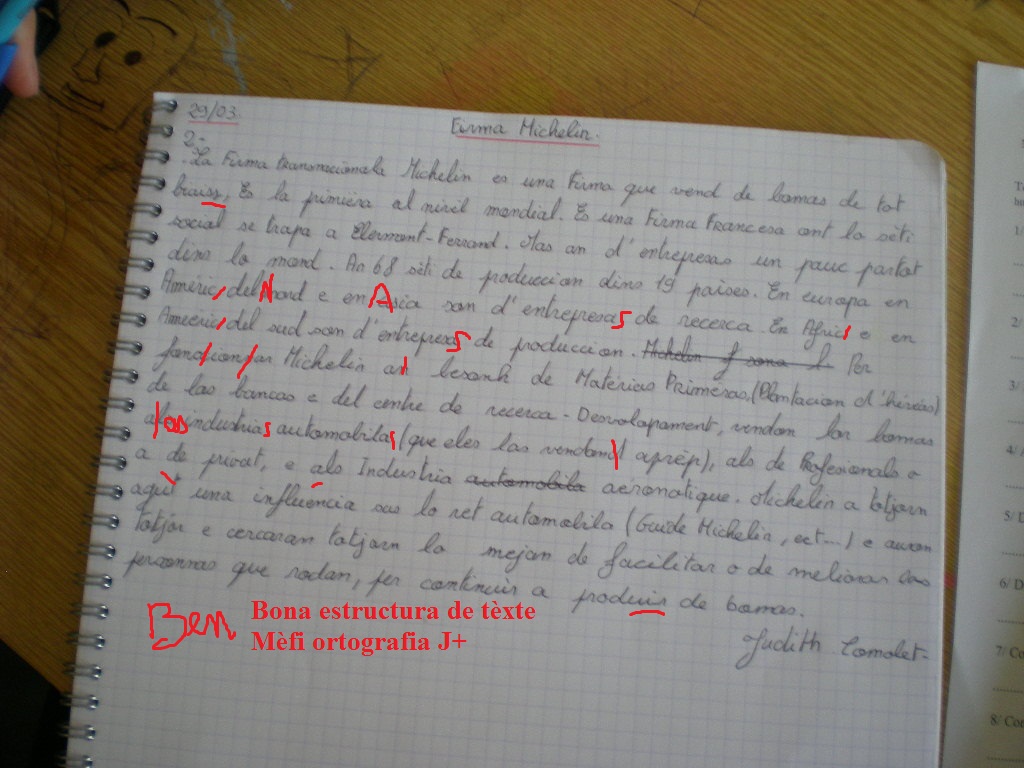 29/03.
Firma Michelin.
2-
La Firma transnacionala Michelin es una Firma que vend de bomas de tot
biaiss, Es la primièra al nivil mondial. Es una Firma Francesa ont lo sèti
social se trapa a Clermont-Ferrand. Mas an d'entrepresas un pauc pertot
dins lo mond. An 68 sèti de produccion dins 19 païses. En europa en
Americ, del Nord e en Asia son d'entrepresas de recerca. En Africa e en
Americ, del sud son d'entrepresas de produccion. Per
foncionar Michelin an besonh de Matèrias Primèras, (Plantacion d'hévéas)
de las bancas e del centre de recerca - Desvolopament, vendon las bomas
a las industrias automobilas (que eles las vendon aprèp), als de Profesionals o
a de privat, e als Industria automobila aéronotique. Michelin a totjorn
agut una influéncia sus lo ret automobila (Guide Michelin, ect...) e auran
totjòr e cercaran totjorn lo mejan de facilitar o de meliorar las
personnas que rodan, per continuir a produir de bomas.
Judith Comolet-
Ben
Bona estructura de tèxte
Mèfi ortografia J+
1/
2/
3/
4/
5/
6/ D
7/ Co
8/ Com